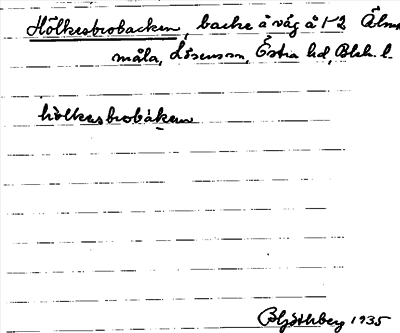 Hölkesbrobacken, backe å väg å 1-2 Älm
måla, Lösenssn, Östra hd, Blek. l.
hö̀lkesbrobákem
Bhjöthberg 1935